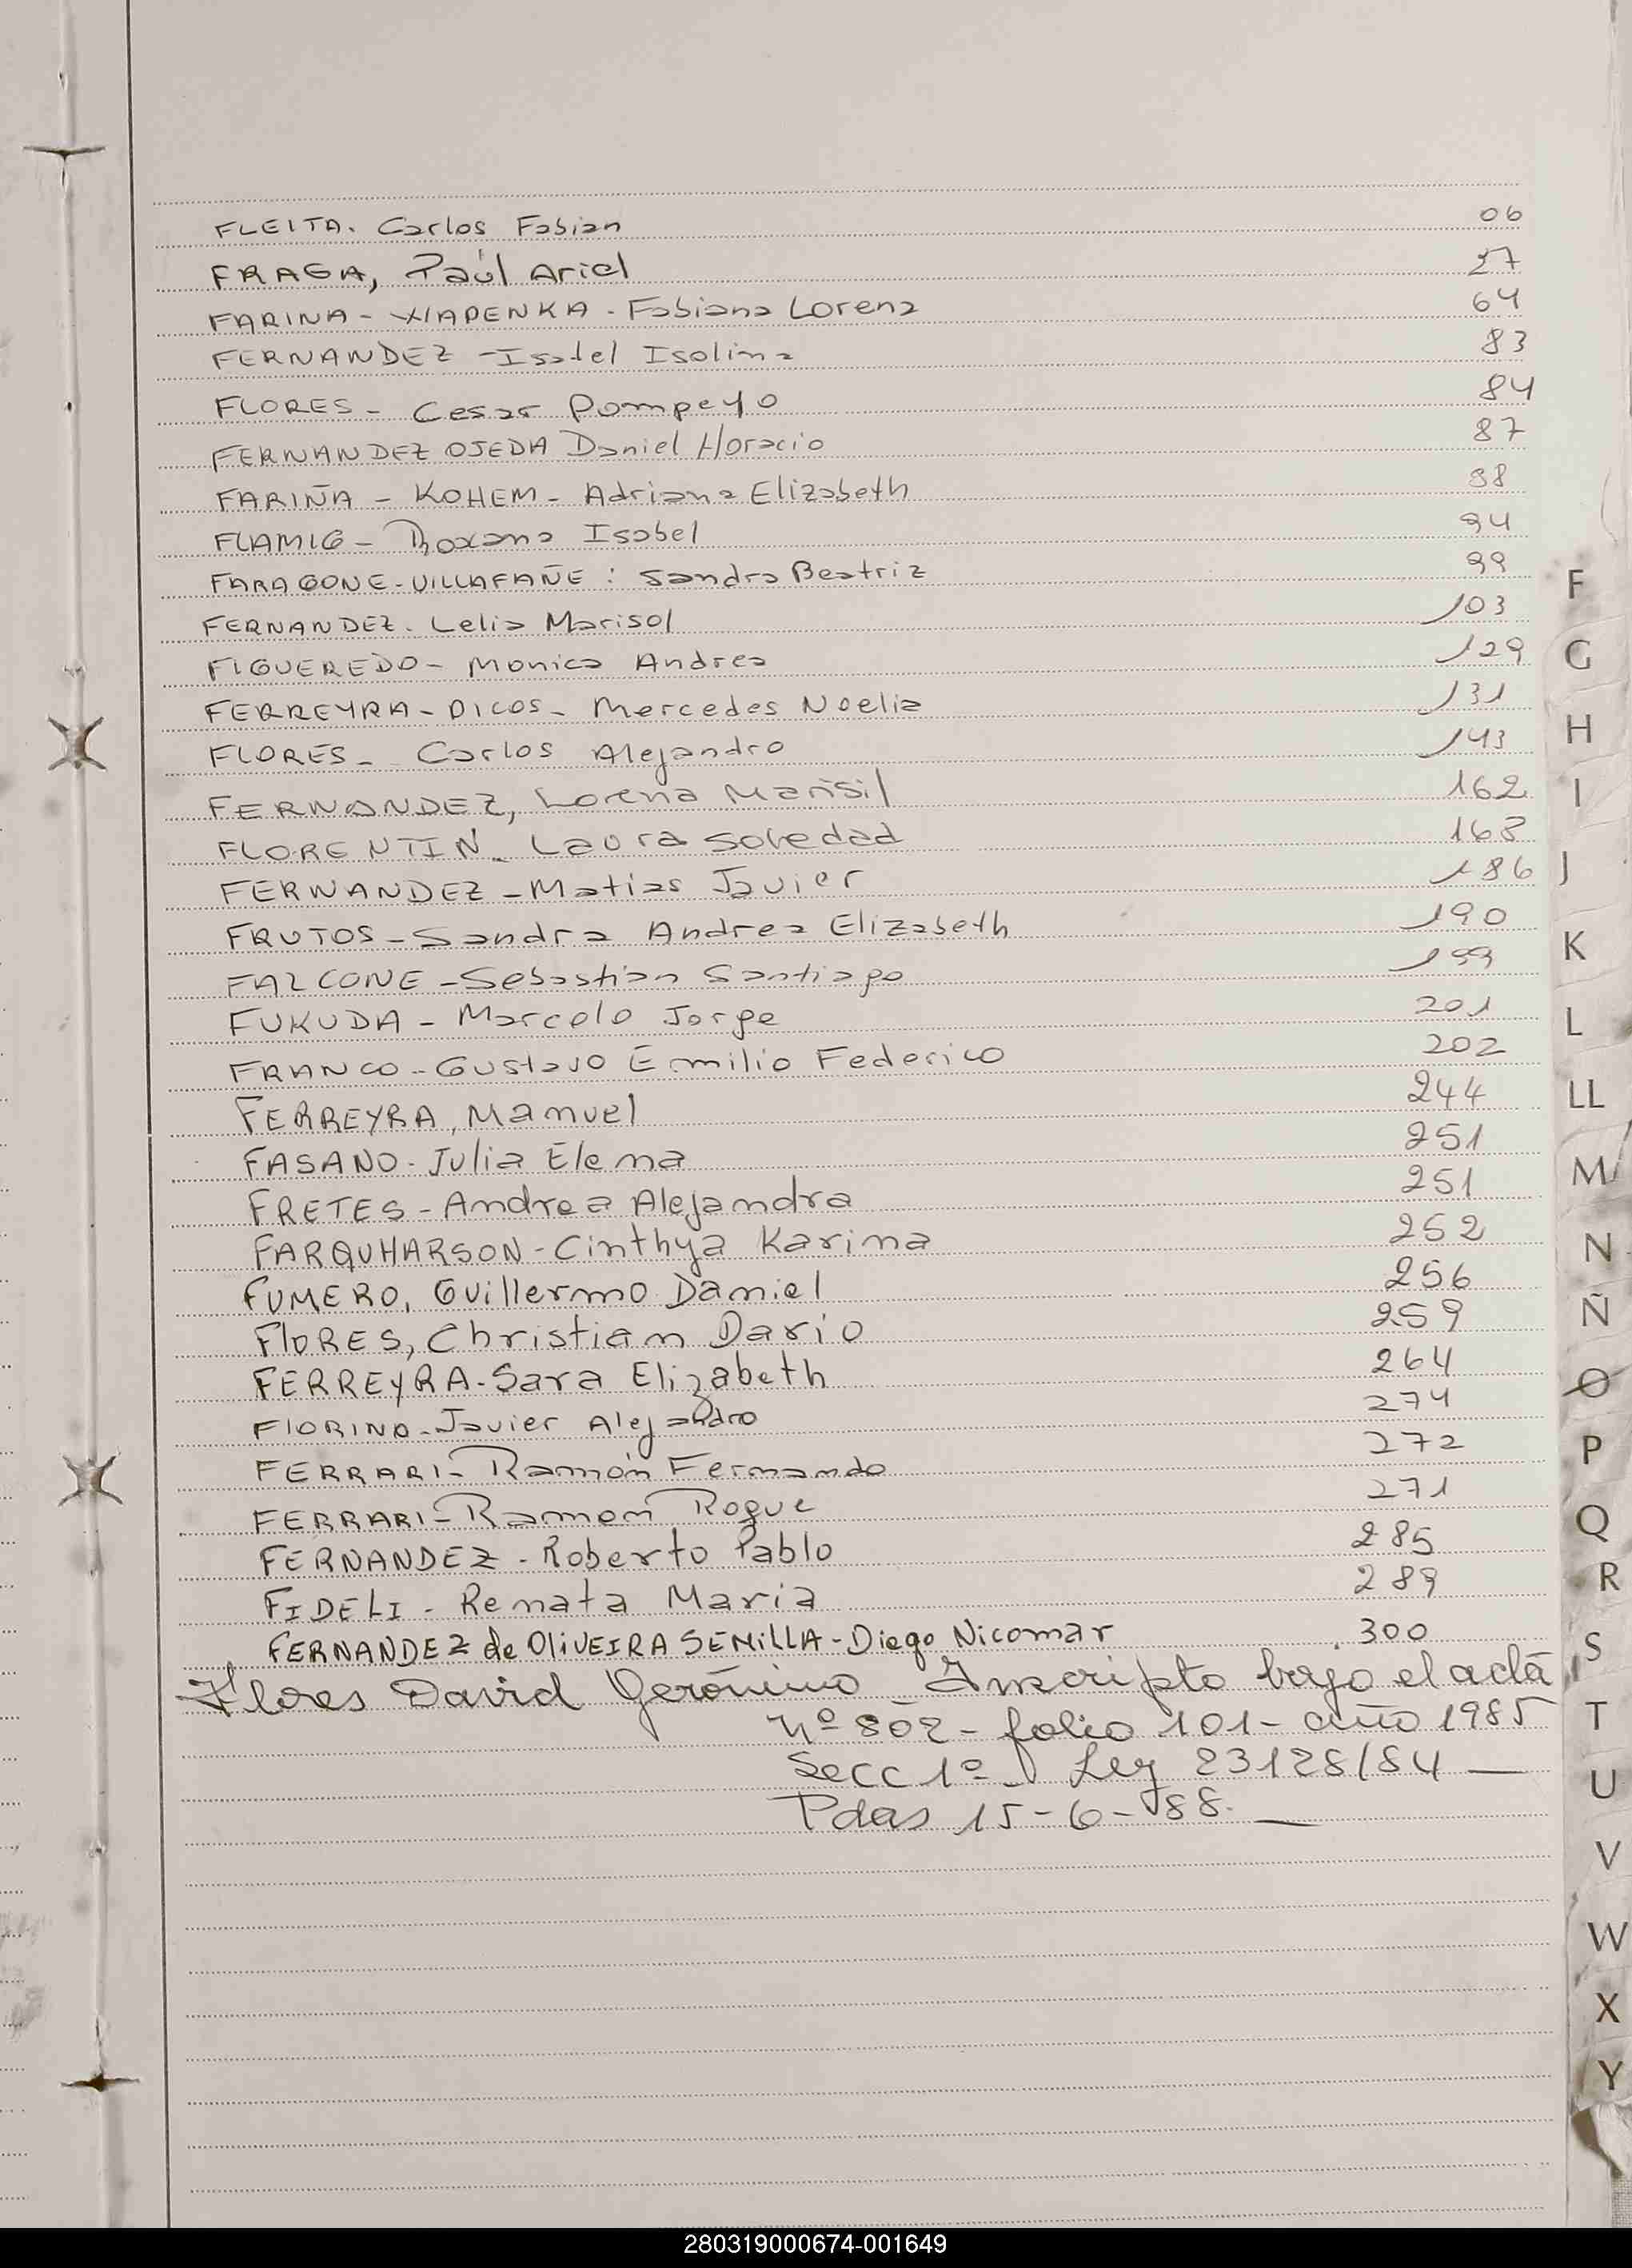 FLEITA. Carlos Fabian 06
FRAGA, Paúl Ariel 27
FARINA - WAPENKA - Fabiana Lorena 64
FERNANDEZ - Isabel Isolina 83
FLORES - Cesar Pompeyo 84
FERNANDEZ OJEDA Daniel Horacio 87
FARIÑA - KOHEM - Adriana Elizabeth 98
FLAMIG - Roxana Isabel 94
FARAGONE - VILLAFAÑE : Sandra Beatriz 99
FERNANDEZ. Lelia Marisol 103
FIGUEREDO - Monica Andrea 129
FERREYRA - DICOS - Mercedes Noelia 131
FLORES - Carlos Alejandro 143
FERNANDEZ, Lorena Marisil 162
FLORENTIN - Laura Soledad 163
FERNANDEZ - Matias Javier 186
FRUTOS - Sandra Andrea Elizabeth 190
FALCONE - Sebastian Santiago 199
FUKUDA - Marcelo Jorge 201
FRANCO - Gustavo Emilio Federico 202
FERREYRA, Manuel 244
FASANO - Julia Elena 251
FRETES - Andrea Alejandra 251
FARQUHARSON - Cinthya Karina 252
FUMERO, Guillermo Daniel 256
FLORES, Christian Dario 259
FERREYRA - Sara Elizabeth 264
FIORINO - Javier Alejandro 274
FERRARI - Ramón Fernando 272
FERRARI - Ramon Roque 271
FERNANDEZ - Roberto Pablo 285
FIDELI - Renata Maria 289
FERNANDEZ de OLIVEIRA SEMILLA - Diego Nicomar 300
Flores David Gerónimo - Inscripto bajo el acta
Nº 802 - folio 101 - año 1985
Secc 1º - Ley 23128/84 —
Pdas 15-6-88. —
F
G
H
I
J
K
L
LL
M
N
Ñ
O
P
Q
R
S
T
U
V
W
X
Y
280319000674-001649